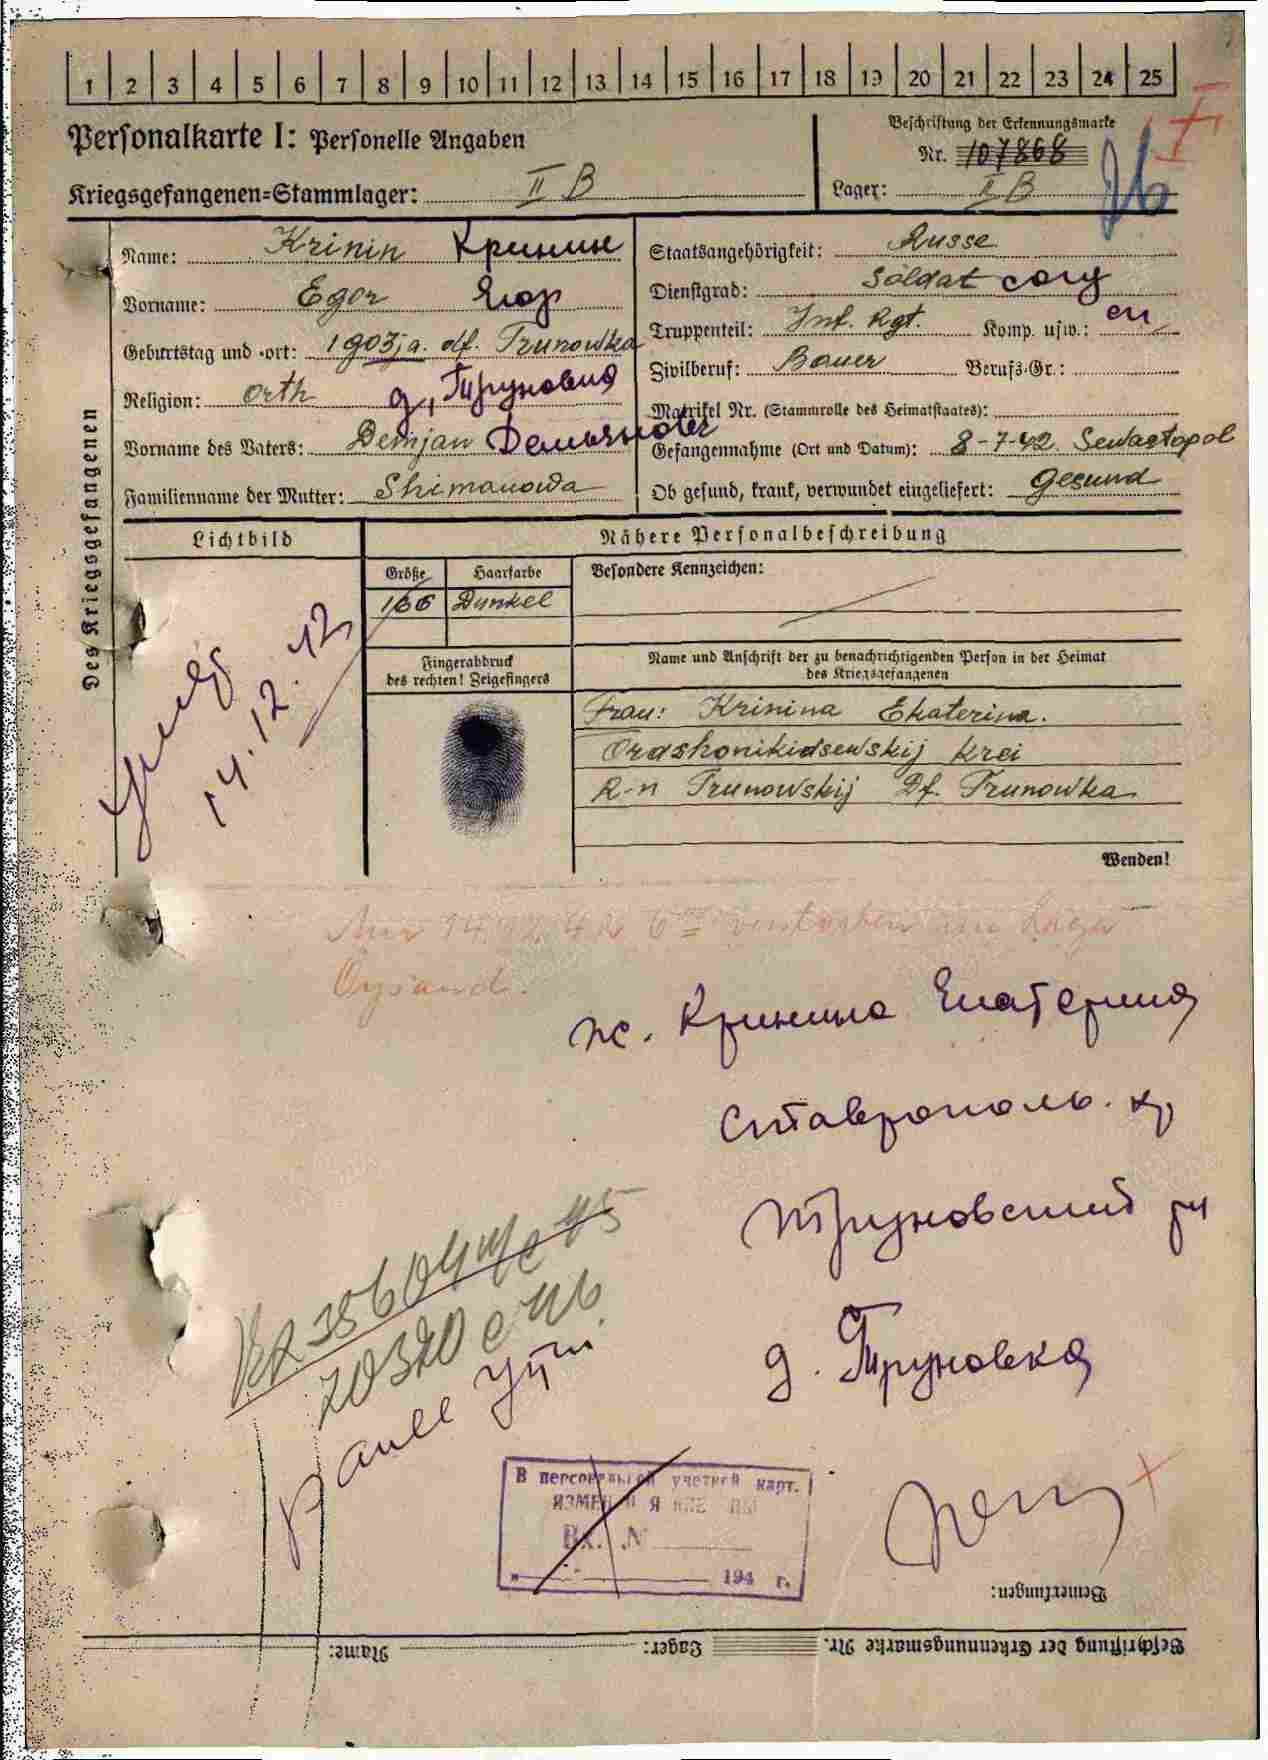 1 2 3 4 5 6 7 8 9 10 11 12 13 14 15 16 17 18 19 20 21 22 23 24 25
Personalkarte I: Personelle Angaben
Kriegsgefangenen=Stammlager: II B
Beschriftung der Erkennungsmarke
Nr. 107868
Lager: II B
Des Kriegsgefangenen
Name: Krinin Кринин
Vorname: Egor Егор
Geburtstag und -ort: 1903 j.a. df. Trunowka
Religion: Orth д. Труновка
Vorname des Vaters: Demjan Демьянович
Familienname der Mutter: Shimanowa
Staatsangehörigkeit: Russe
Dienstgrad: Soldat солд
Truppenteil: Inf. Rgt. Komp. usw.: сп
Zivilberuf: Bauer Berufs-Gr.:
Matrikel Nr. (Stammrolle des Heimatstaates):
Gefangennahme (Ort und Datum): 8-7-42. Sewastopol
Ob gesund, krank, verwundet eingeliefert: Gesund
Lichtbild
Nähere Personalbeschreibung
Größe Haarfarbe Besondere Kennzeichen:
166 Dunkel
Fingerabdruck
des rechten! Zeigefingers
Name und Anschrift der zu benachrichtigenden Person in der Heimat
des Kriegsgefangenen
Frau: Krinina Ekaterina.
Ordshonikidsewskij Krei
R-n Trunowskij Df. Trunowka
Wenden!
умер
14.12.42
Am 14.12.42 6 verstorben im Lager
ж. Кринина Екатерина
Ставрополь. кр
Труновский рн
д. Труновка
35604 45
70320 с 46
ранее
В персональной учетной карт.
Вх. N
194 г.
Bemerkungen:
Beschriftung der Erkennungsmarke Nr. Lager: Name: